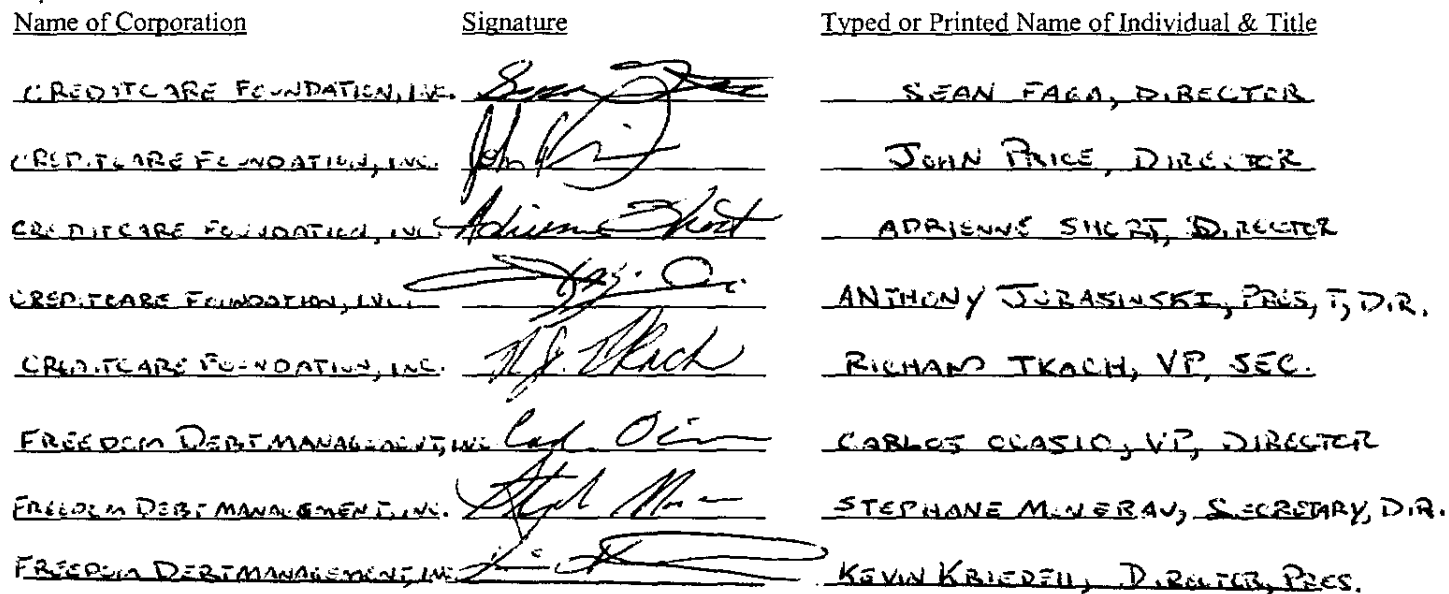 Name of Corporation Signature Typed or Printed Name of Individual & Title
CREDITCARE FOUNDATION, INC. SEAN FAGA, DIRECTOR
CREDITCARE FOUNDATION, INC. John JOHN PRICE, DIRECTOR
CREDITCARE FOUNDATION, INC. Adrienne Short ADRIENNE SHORT, DIRECTOR
CREDITCARE FOUNDATION, INC. ANTHONY JURASINSKI, PRES, T, DIR.
CREDITCARE FOUNDATION, INC. R.J. Tkach RICHARD TKACH, VP, SEC.
FREEDOM DEBT MANAGEMENT, INC. CARLOS OCASIO, VP, DIRECTOR
FREEDOM DEBT MANAGEMENT, INC. STEPHANE, SECRETARY, DIR.
FREEDOM DEBT MANAGEMENT, INC. KEVIN, DIRECTOR, PRES.